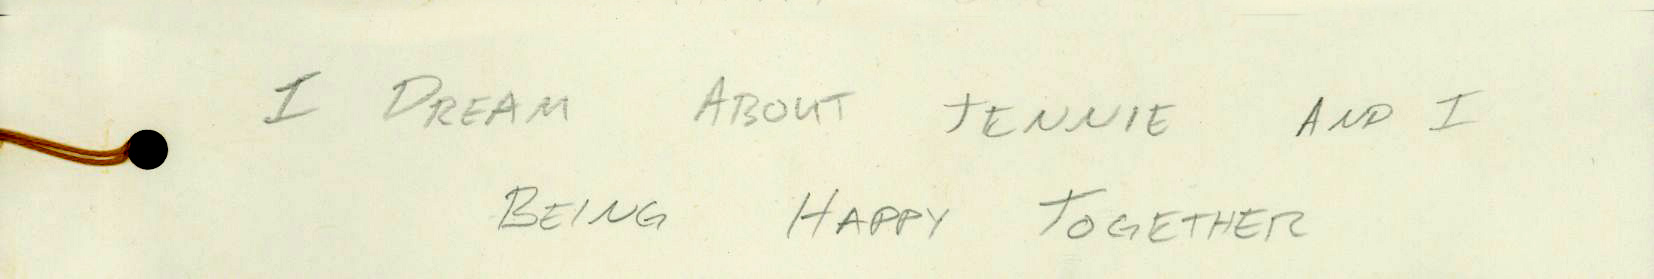 I DREAM ABOUT JENNIE AND I
BEING HAPPY TOGETHER